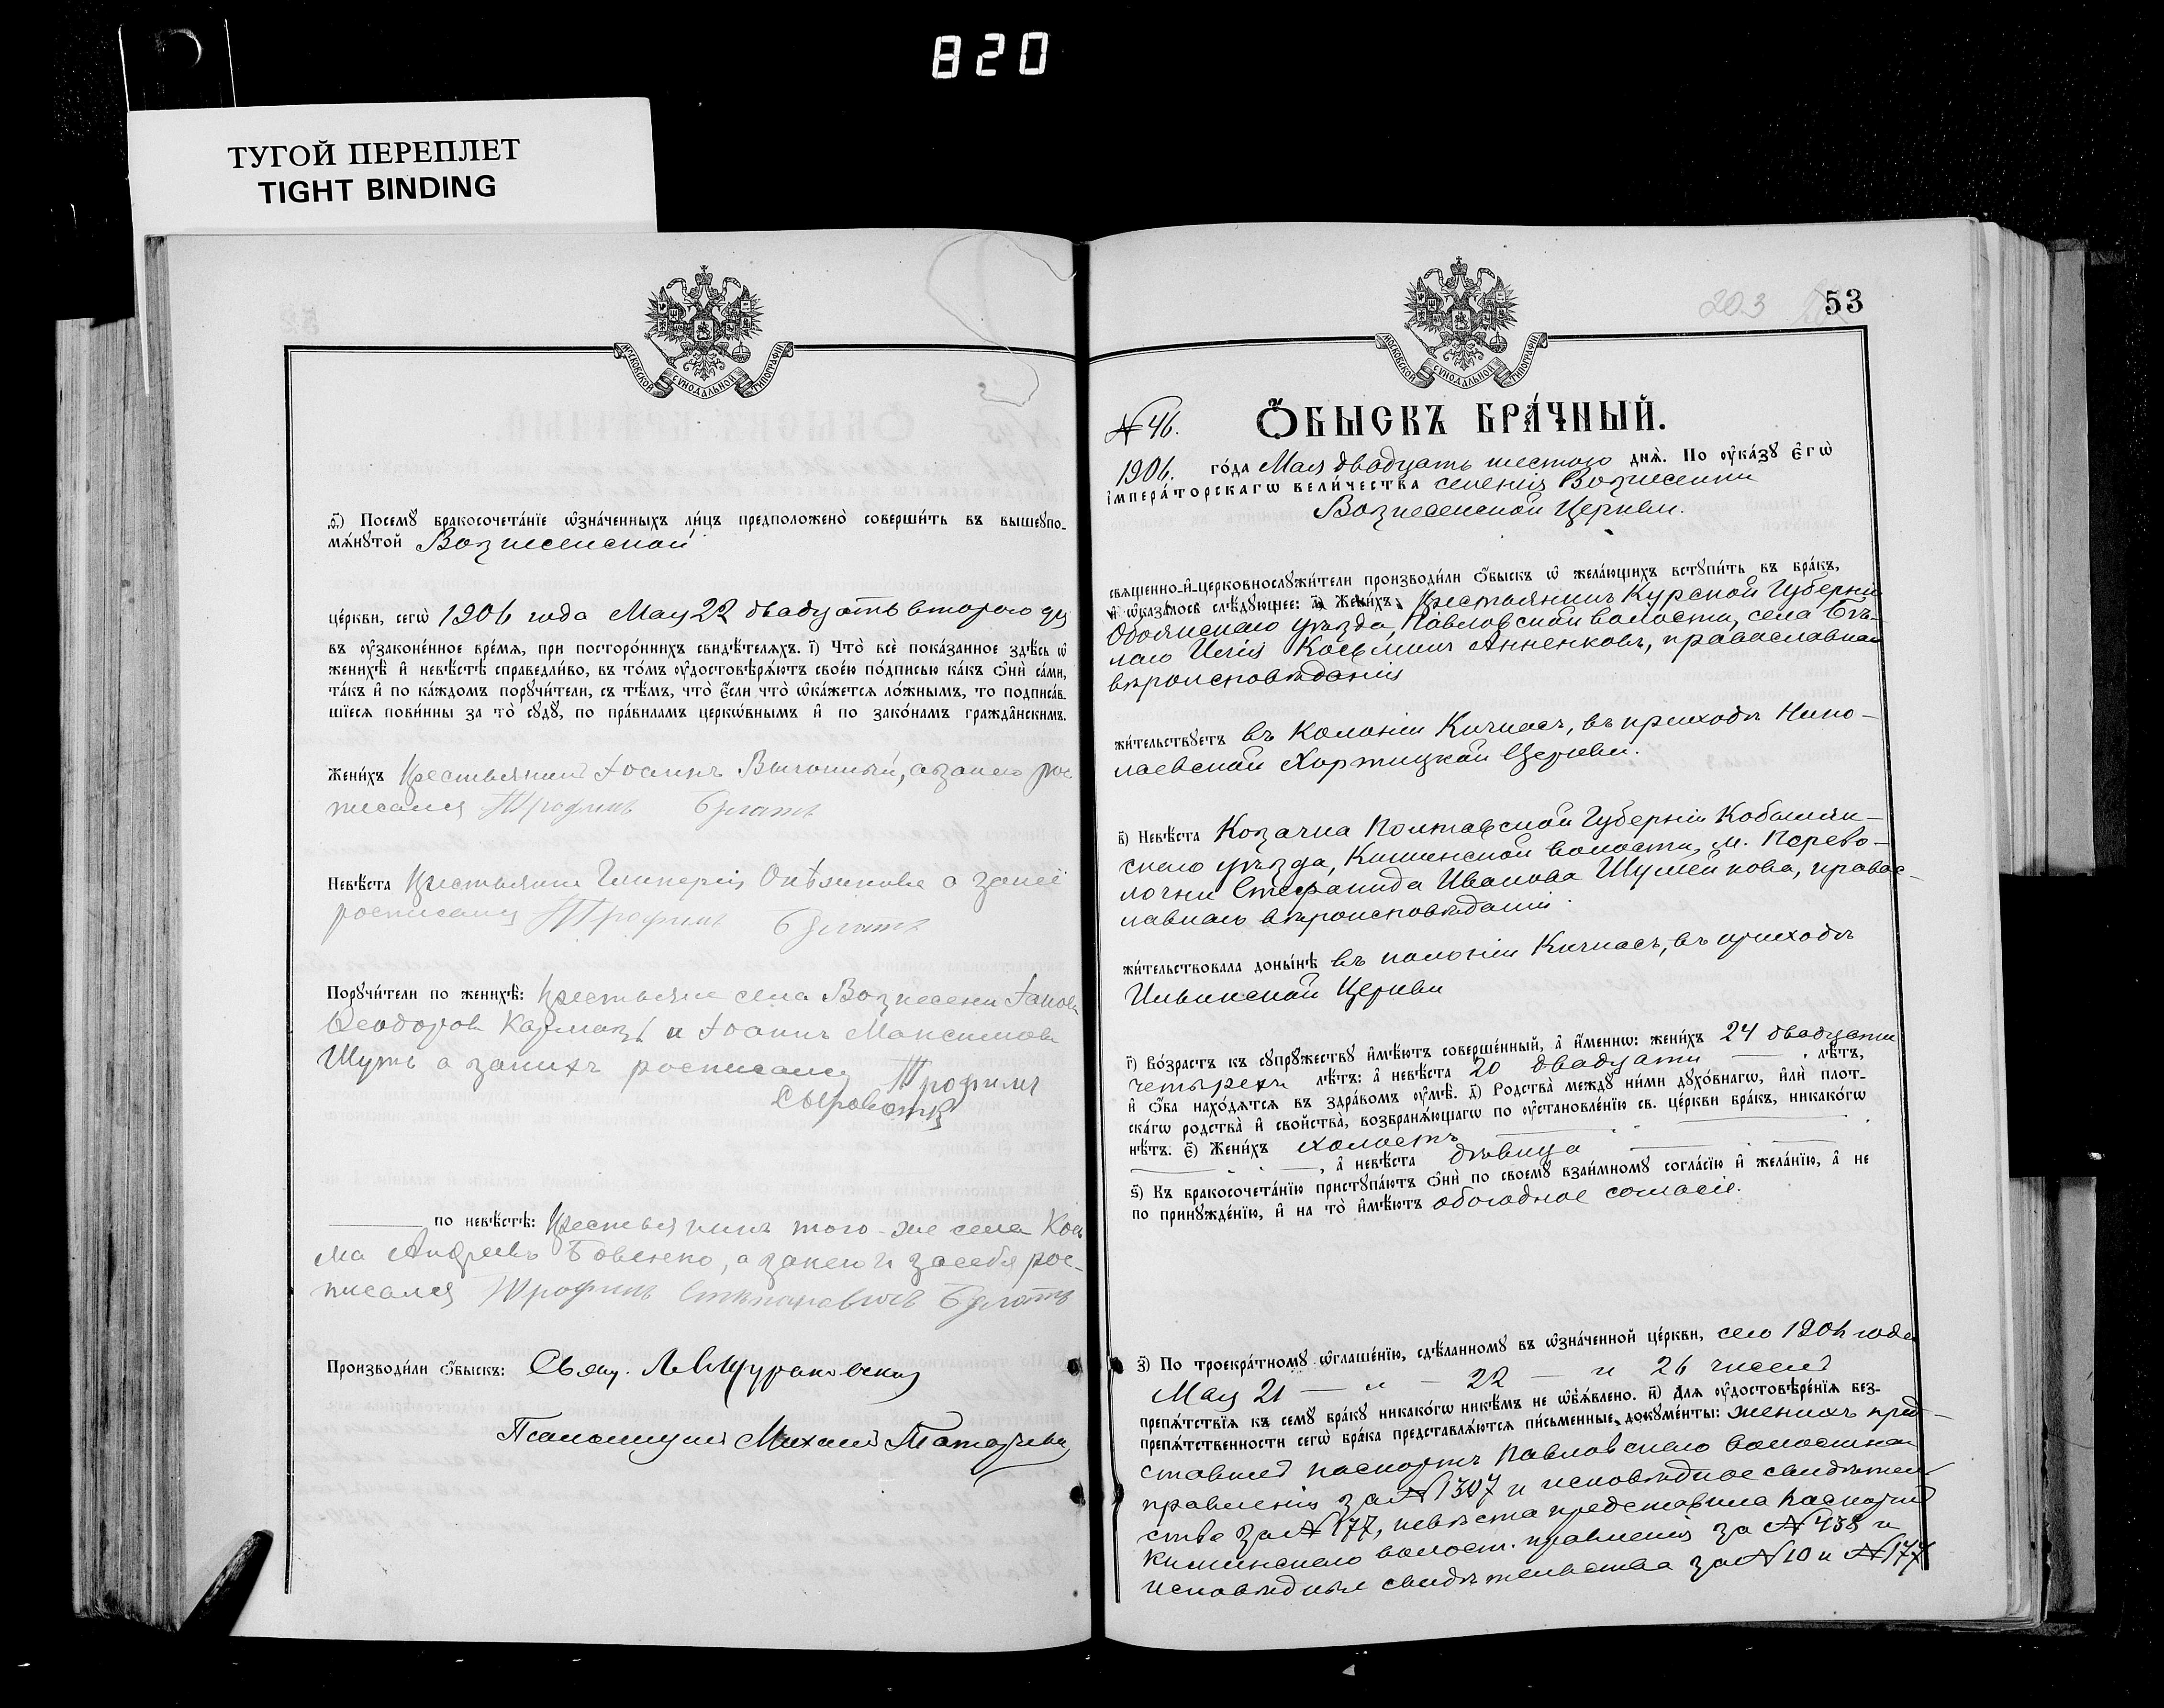 820
ТУГОЙ ПЕРЕПЛЕТ
TIGHT BINDING
МОСКОВСКОЙ СѴНОДАЛЬНОЙ ТИПОГРАФІИ
Ѳ҃) Посемꙋ̀ бракосочета́нїе ѡ҆зна́ченныхъ ли́цъ предположено̀ соверши́ть въ вышеꙋпо-
мѧ́нꙋтой Вознесенской
це́ркви, сегѡ̀ 1906 года Мая 22 двадцать второго дня
въ ᲂу҆зако́ненное вре́мѧ, при посторо́ннихъ свидѣ́телѧхъ. і҃) Что̀ всѐ пока́занное здѣ́сь ѡ҆
женихѣ̀ и҆ невѣ́стѣ справедли́во, въ то́мъ ᲂу҆достовѣрѧ́ютъ свое́ю по́дписью ка́къ ѻ҆нѝ са́ми,
та́къ и҆ по ка́ждомъ порꙋчи́тели, съ тѣ́мъ, что̀ є҆́сли что̀ ѡ҆ка́жетсѧ ло́жнымъ, то подписа́в-
шїесѧ пови́нны за то̀ сꙋдꙋ̀, по пра́виламъ церкѡ́внымъ и҆ по зако́намъ гражда̑нскимъ.
Жени́хъ Крестьянинъ Іоаннъ Выгонный, а за него рос
писался Трофимъ Булатъ
Невѣ́ста Крестьянка Гликерія а за неё
росписался Трофимъ Булатъ
Порꙋчи́тели по женихѣ̀: Крестьяне села Вознесенки Іаковъ
Ѳеодоровъ Кармазь и Іоаннъ Максимовъ
Шуть а за нихъ росписался Трофимъ
Сыроватка
по невѣ́стѣ: Крестьянинъ того-же села Кось
ма Андреевъ Бовенко, а за него и за себя рос-
писался Трофимъ Булатъ
Производи́ли ѻ҆́быскъ: Свящ. Щураковскій
Псаломщикъ Михаилъ
203 53
МОСКОВСКОЙ СѴНОДАЛЬНОЙ ТИПОГРАФІИ
№ 46. Ѻ҆́БЫСКЪ БРА́ЧНЫЙ.
1906. го́да Мая двадцать шестого днѧ̀. По ᲂу҆ка́зꙋ є҆гѡ̀
і҆мпера́торскагѡ вели́чества селенія Вознесенки
Вознесенской Церкви.
свѧщенно-и҆-церковнослꙋжи́тели производи́ли ѻ҆́быскъ ѡ҆ жела́ющихъ встꙋпи́ть въ бра́къ,
и҆ ѡ҆каза́лосѧ слѣ́дꙋющее: а҃) Жени́хъ, Крестьянинъ Курской Губерніи
Обоянскаго уѣзда, Павловской волости, села Бѣ-
лаго Илія Косьминъ Анненковъ, православнаго
вѣроисповѣданія
жи́тельствꙋетъ въ колоніи Кичкасъ, въ приходѣ Нико-
лаевской Хортицкой Церкви.
в҃) Невѣ́ста Козачка Полтавской Губерніи Кобыляк-
скаго уѣзда, Кишенской волости, м. Перево-
лочки Стефанида Иванова Шумейкова, правос-
лавнаго вѣроисповѣданія.
жи́тельствовала доны́нѣ въ колоніи Кичкасъ, въ приходѣ
Церкви
г҃) Во́зрастъ къ сꙋпрꙋ́жествꙋ и҆мѣ́ютъ соверше́нный, а҆ и҆́меннѡ: жени́хъ 24 двадцати
четырехъ лѣ́тъ: а҆ невѣ́ста 20 двадцати лѣ́тъ,
и҆ ѻ҆́ба нахо́дѧтсѧ въ здра́вомъ ᲂу҆мѣ̀. д҃) Родства̀ междꙋ̀ ни́ми дꙋхо́внагѡ, и҆лѝ плот-
ска́гѡ родства̀ и҆ сво́йства, возбранѧ́ющагѡ по ᲂу҆становле́нїю св. це́ркви бра́къ, никако́гѡ
нѣ́тъ. є҃) Жени́хъ холостъ
, а҆ невѣ́ста дѣвица
ѕ҃) Къ бракосочета́нїю пристꙋпа́ютъ ѻ҆нѝ по своемꙋ̀ взаи́мномꙋ согла́сїю и҆ жела́нїю, а҆ не
по принꙋжде́нїю, и҆ на то̀ и҆мѣ́ютъ обоюдное согласіе.
з҃) По троекра́тномꙋ ѡ҆глаше́нїю, сдѣ́ланномꙋ въ ѡ҆зна́ченной це́ркви, сего 1906 года
Мая 21 — " — 22 — и 26 чиселъ
препѧ́тствїѧ къ семꙋ̀ бра́кꙋ никако́гѡ никѣ́мъ не ѡ҆б̾ѧ́влено. и҃) Длѧ ᲂу҆достовѣре́нїѧ без-
препѧ́тственности сегѡ̀ бра́ка представлѧ́ютсѧ пи́сьменные докꙋме́нты: женихъ пред-
ставилъ паспортъ Павловскаго волостнаго
правленія за № 1307 и исповѣдное свидѣтель
ство за № 177, невѣста представила паспортъ
Кишинскаго волост. правленія за № 438 и
исповѣдныя свидѣтельства за № 10 и № 177